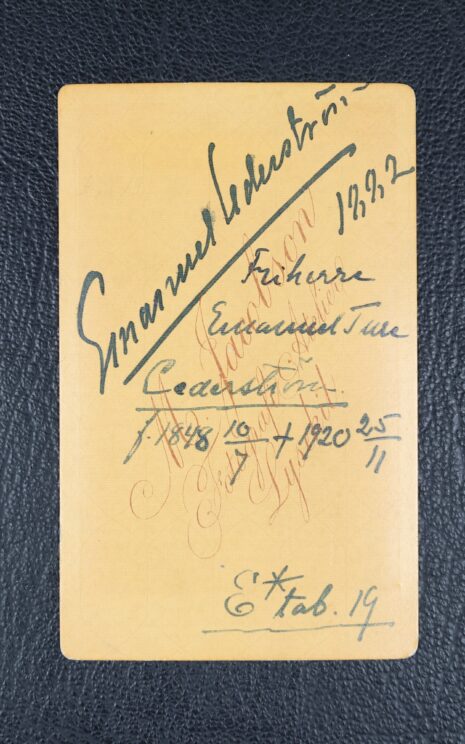 Emanuel Cederström
1882
Friherre
Emanuel Ture
Cederström
f. 1848 10/7 + 1920 25/11
E* tab. 19
Jacobson
Lysekil